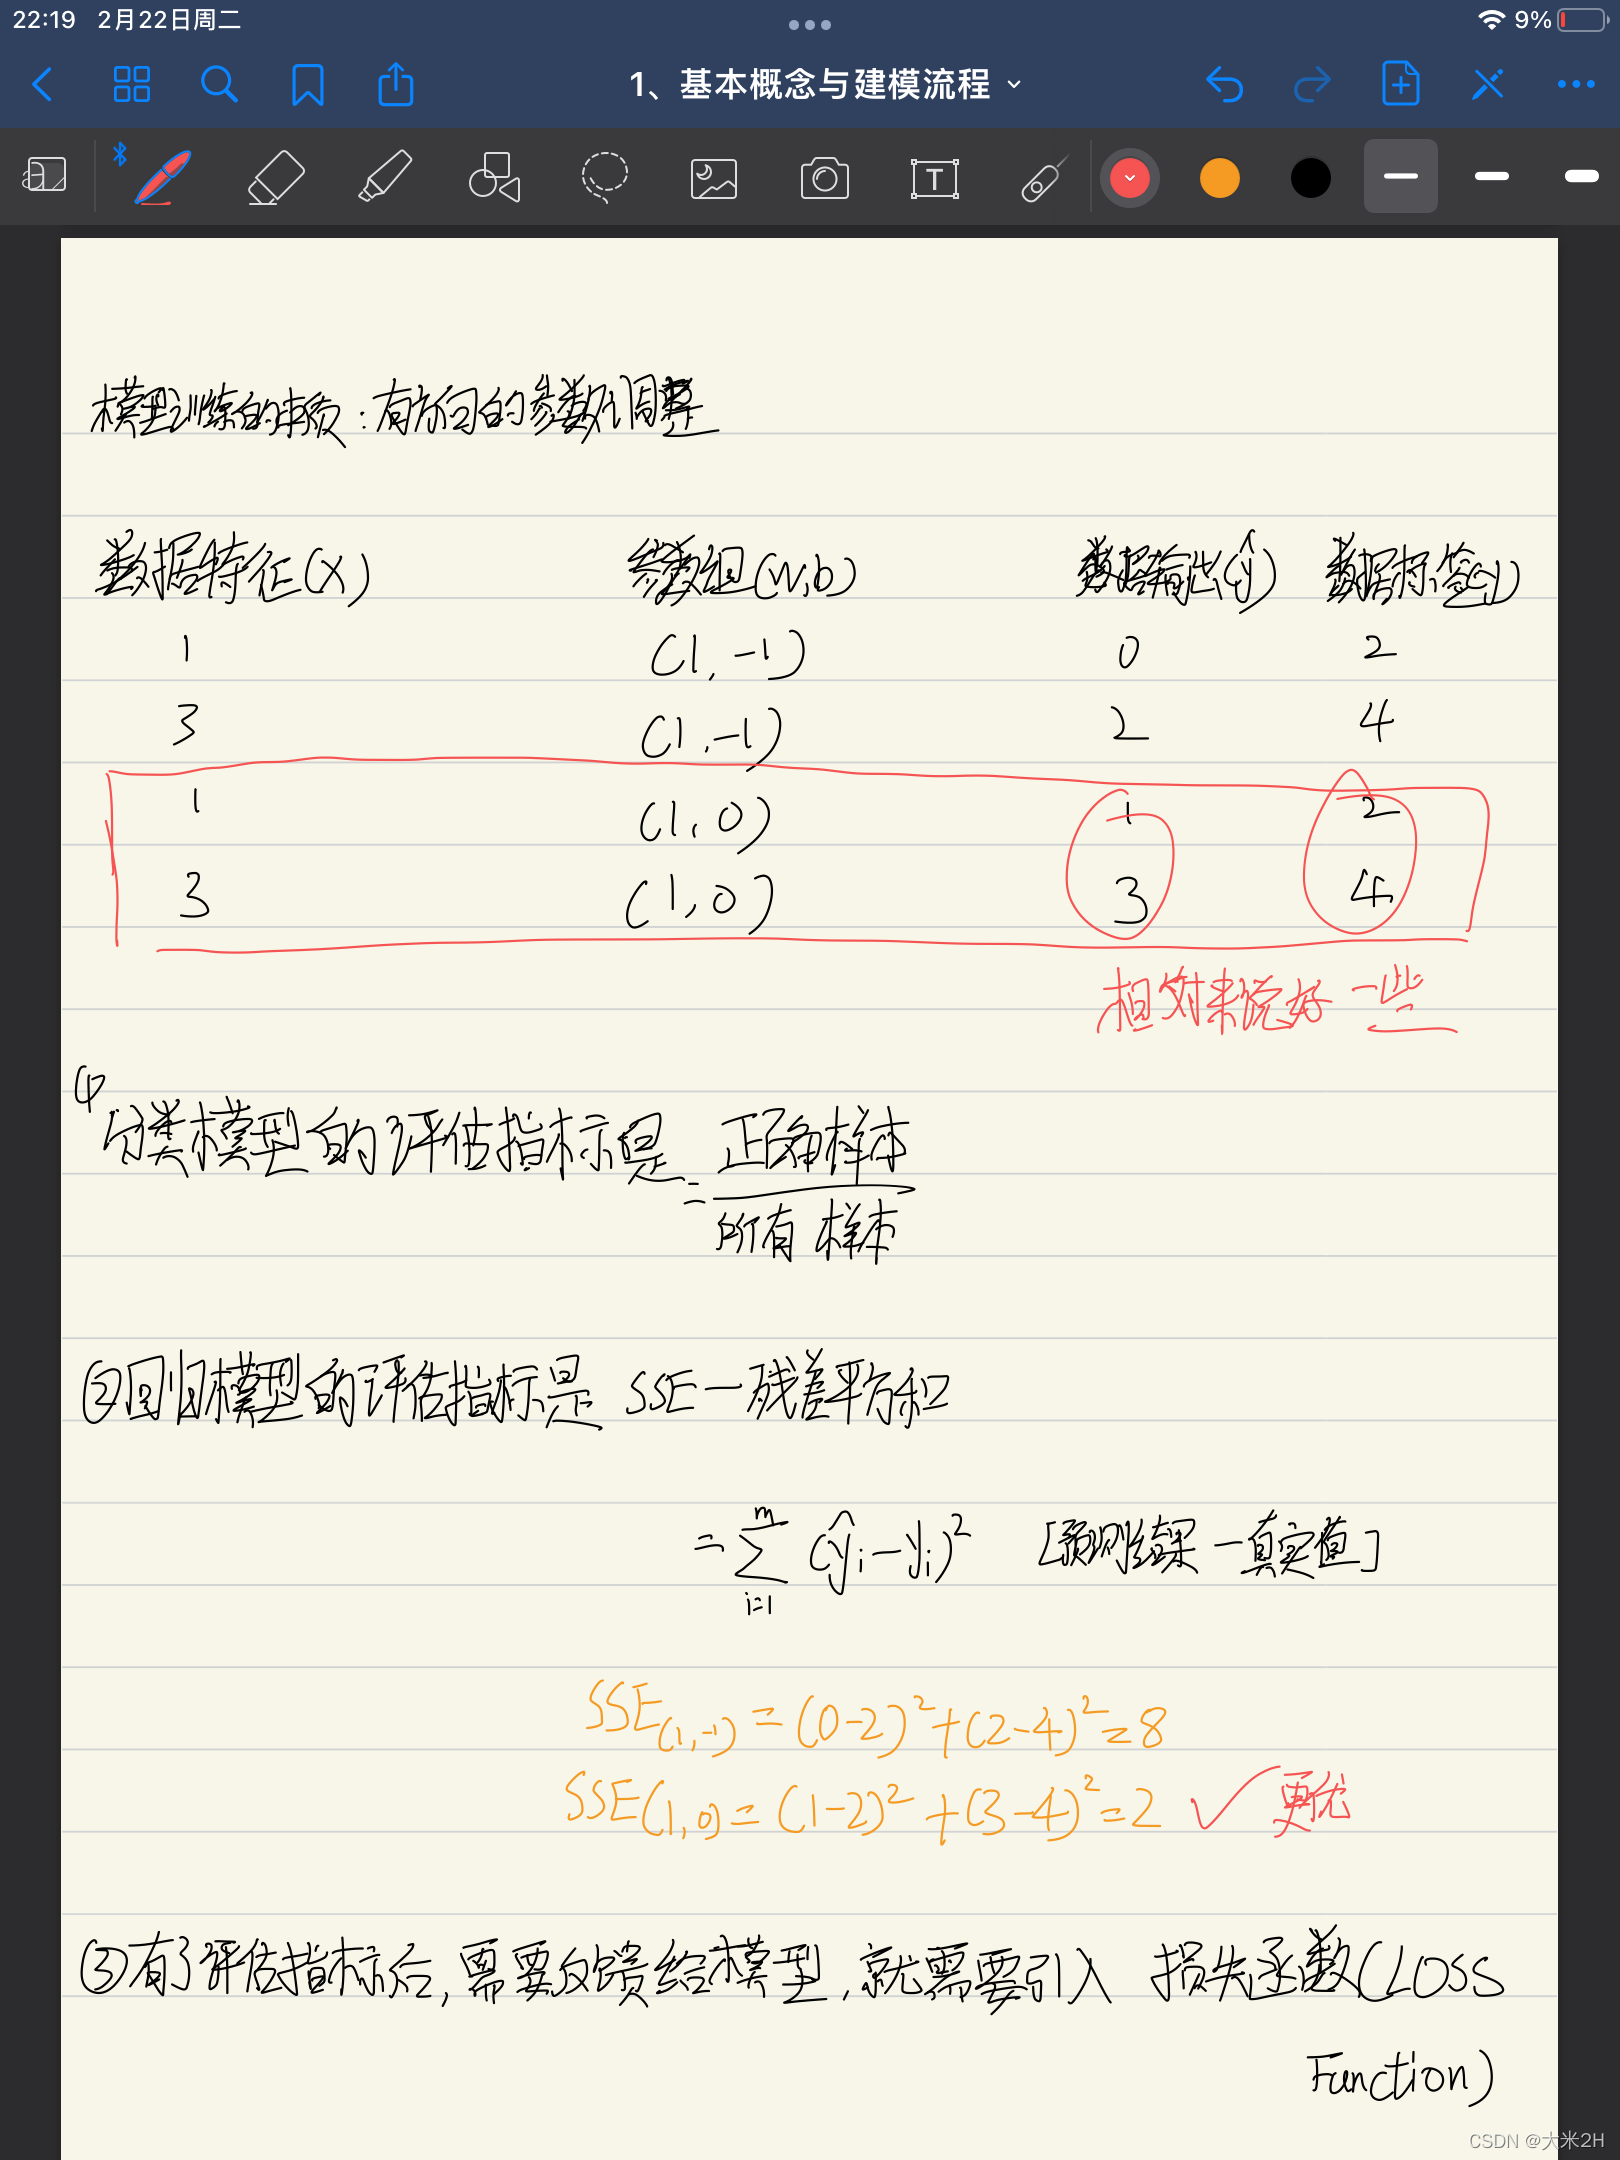 22:19 2月22日周二 9%
1、基本概念与建模流程
模型训练的本质：有方向的参数调整
数据特征(x) 参数组(w,b) 数据输出(ŷ) 数据标签(y)
1 (1,-1) 0 2
3 (1,-1) 2 4
1 (1,0) 1 2
3 (1,0) 3 4
相对来说好一些
①
分类模型的评估指标是 = 正确样本
所有样本
②回归模型的评估指标是 SSE—残差平方和
= ∑ᵢ₌₁ᵐ (ŷᵢ-yᵢ)² [预测结果-真实值]
SSE(1,-1) = (0-2)²+(2-4)²=8
SSE(1,0) = (1-2)²+(3-4)²=2 ✓更优
③有了评估指标后,需要反馈给模型,就需要引入 损失函数(LOSS
Function)
CSDN @大米2H